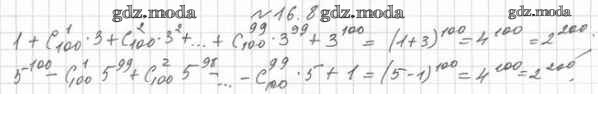 gdz.moda gdz.moda gdz.moda
№16.8
1 + C₁₀₀¹·3 + C₁₀₀²·3² + ... + C₁₀₀⁹⁹·3⁹⁹ + 3¹⁰⁰ = (1+3)¹⁰⁰ = 4¹⁰⁰ = 2²⁰⁰.
5¹⁰⁰ - C₁₀₀¹ 5⁹⁹ + C₁₀₀² 5⁹⁸ - ... - C₁₀₀⁹⁹·5 + 1 = (5-1)¹⁰⁰ = 4¹⁰⁰ = 2²⁰⁰.